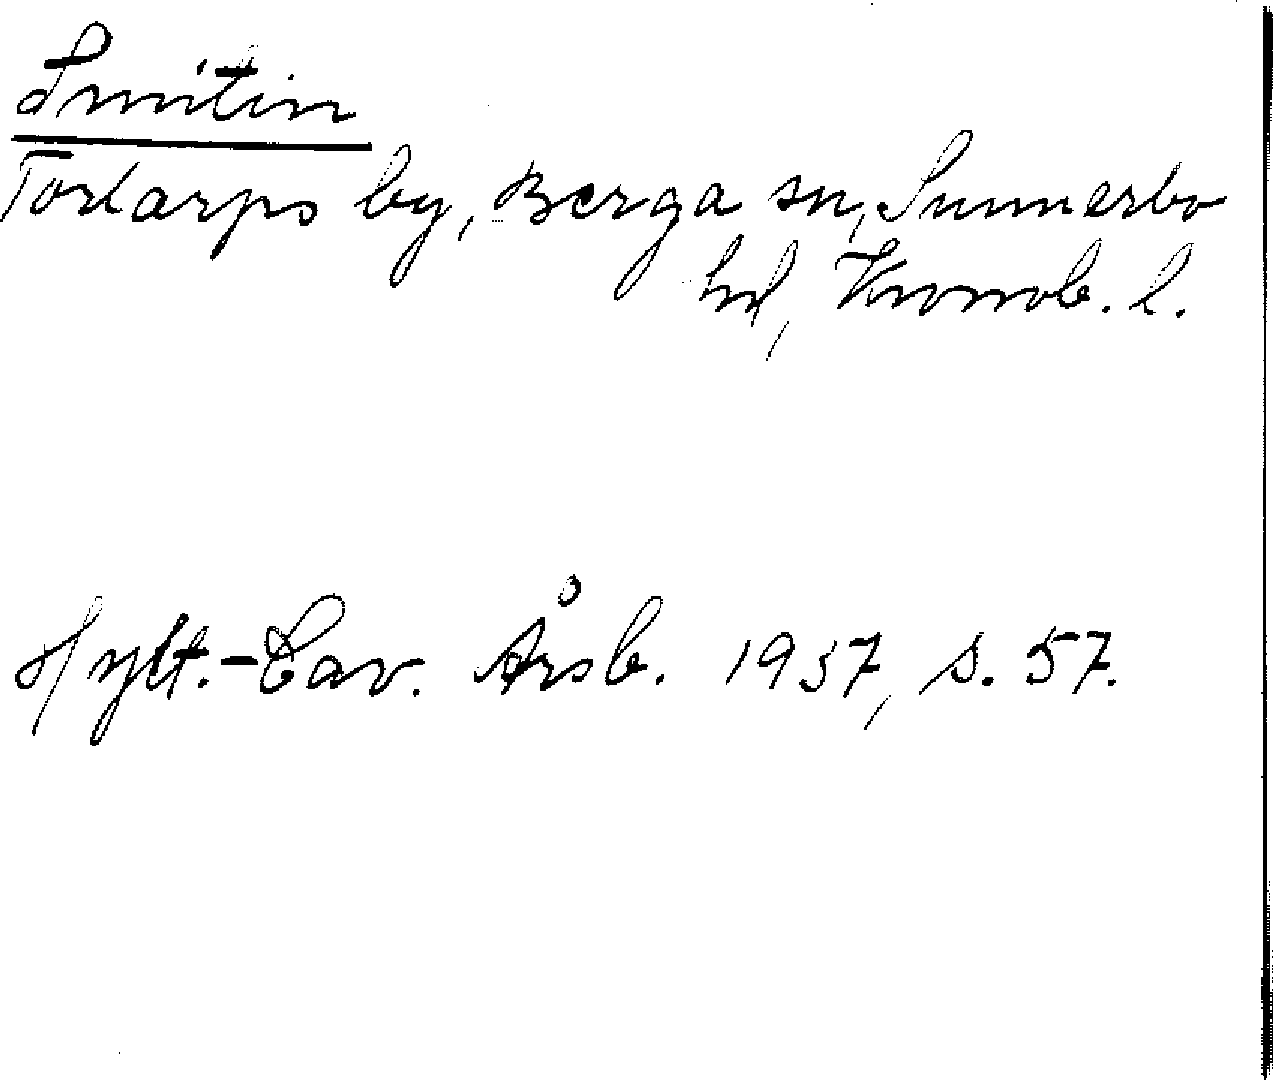 Smitin
Torlarps by, Berga sn, Sunnerbo
hd, Kronob. l.
Hylt.-Cav. Årsb. 1937, s. 57.